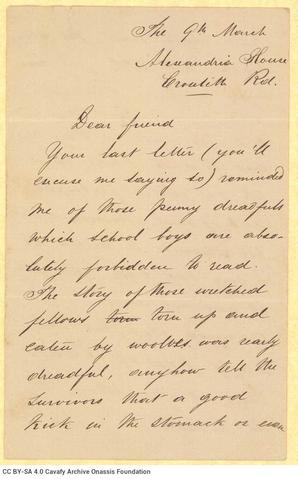 The 9th March
Alexandria House
Croxteth Rd.
Dear friend
Your last letter (you'll
excuse me saying so) reminded
me of those penny dreadfuls
which school boys are abso-
lutely forbidden to read.
The story of those wretched
fellows torn torn up and
eaten by woolves was realy
dreadful, anyhow tell the
survivors that a good
kick in the stomack or even
CC BY-SA 4.0 Cavafy Archive Onassis Foundation